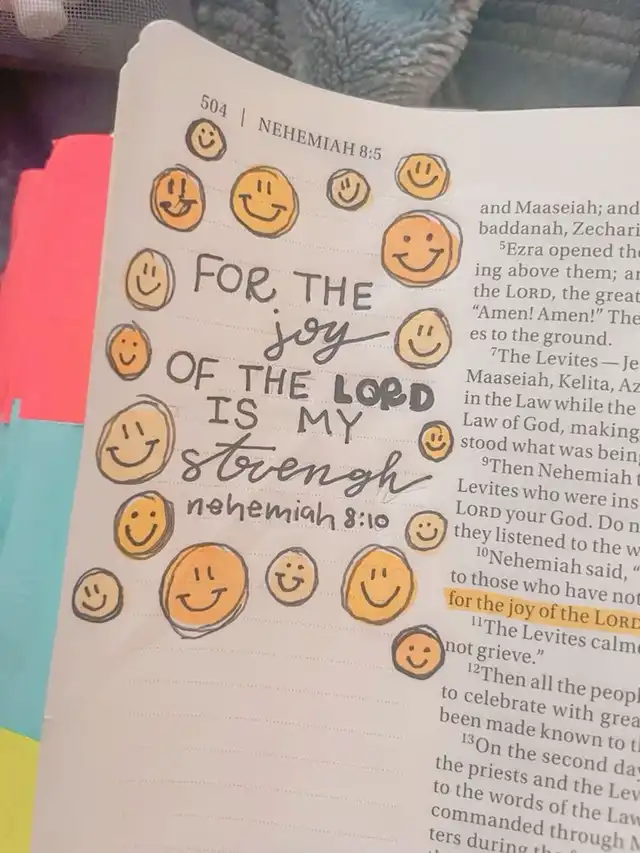 504 | NEHEMIAH 8:5
FOR THE
joy
OF THE LORD
IS MY
strengh
nehemiah 8:10
and Maaseiah; and
baddanah, Zechari
5Ezra opened the
ing above them; a
the LORD, the great
"Amen! Amen!" The
es to the ground.
7The Levites—Je
Maaseiah, Kelita, Az
in the Law while the
Law of God, making
stood what was being
9Then Nehemiah t
Levites who were ins
LORD your God. Do n
they listened to the w
10Nehemiah said, "
to those who have not
for the joy of the LORD
11The Levites calm
not grieve."
12Then all the peopl
to celebrate with grea
been made known to t
13On the second da
the priests and the Lev
to the words of the Law
commanded through M
ters during the